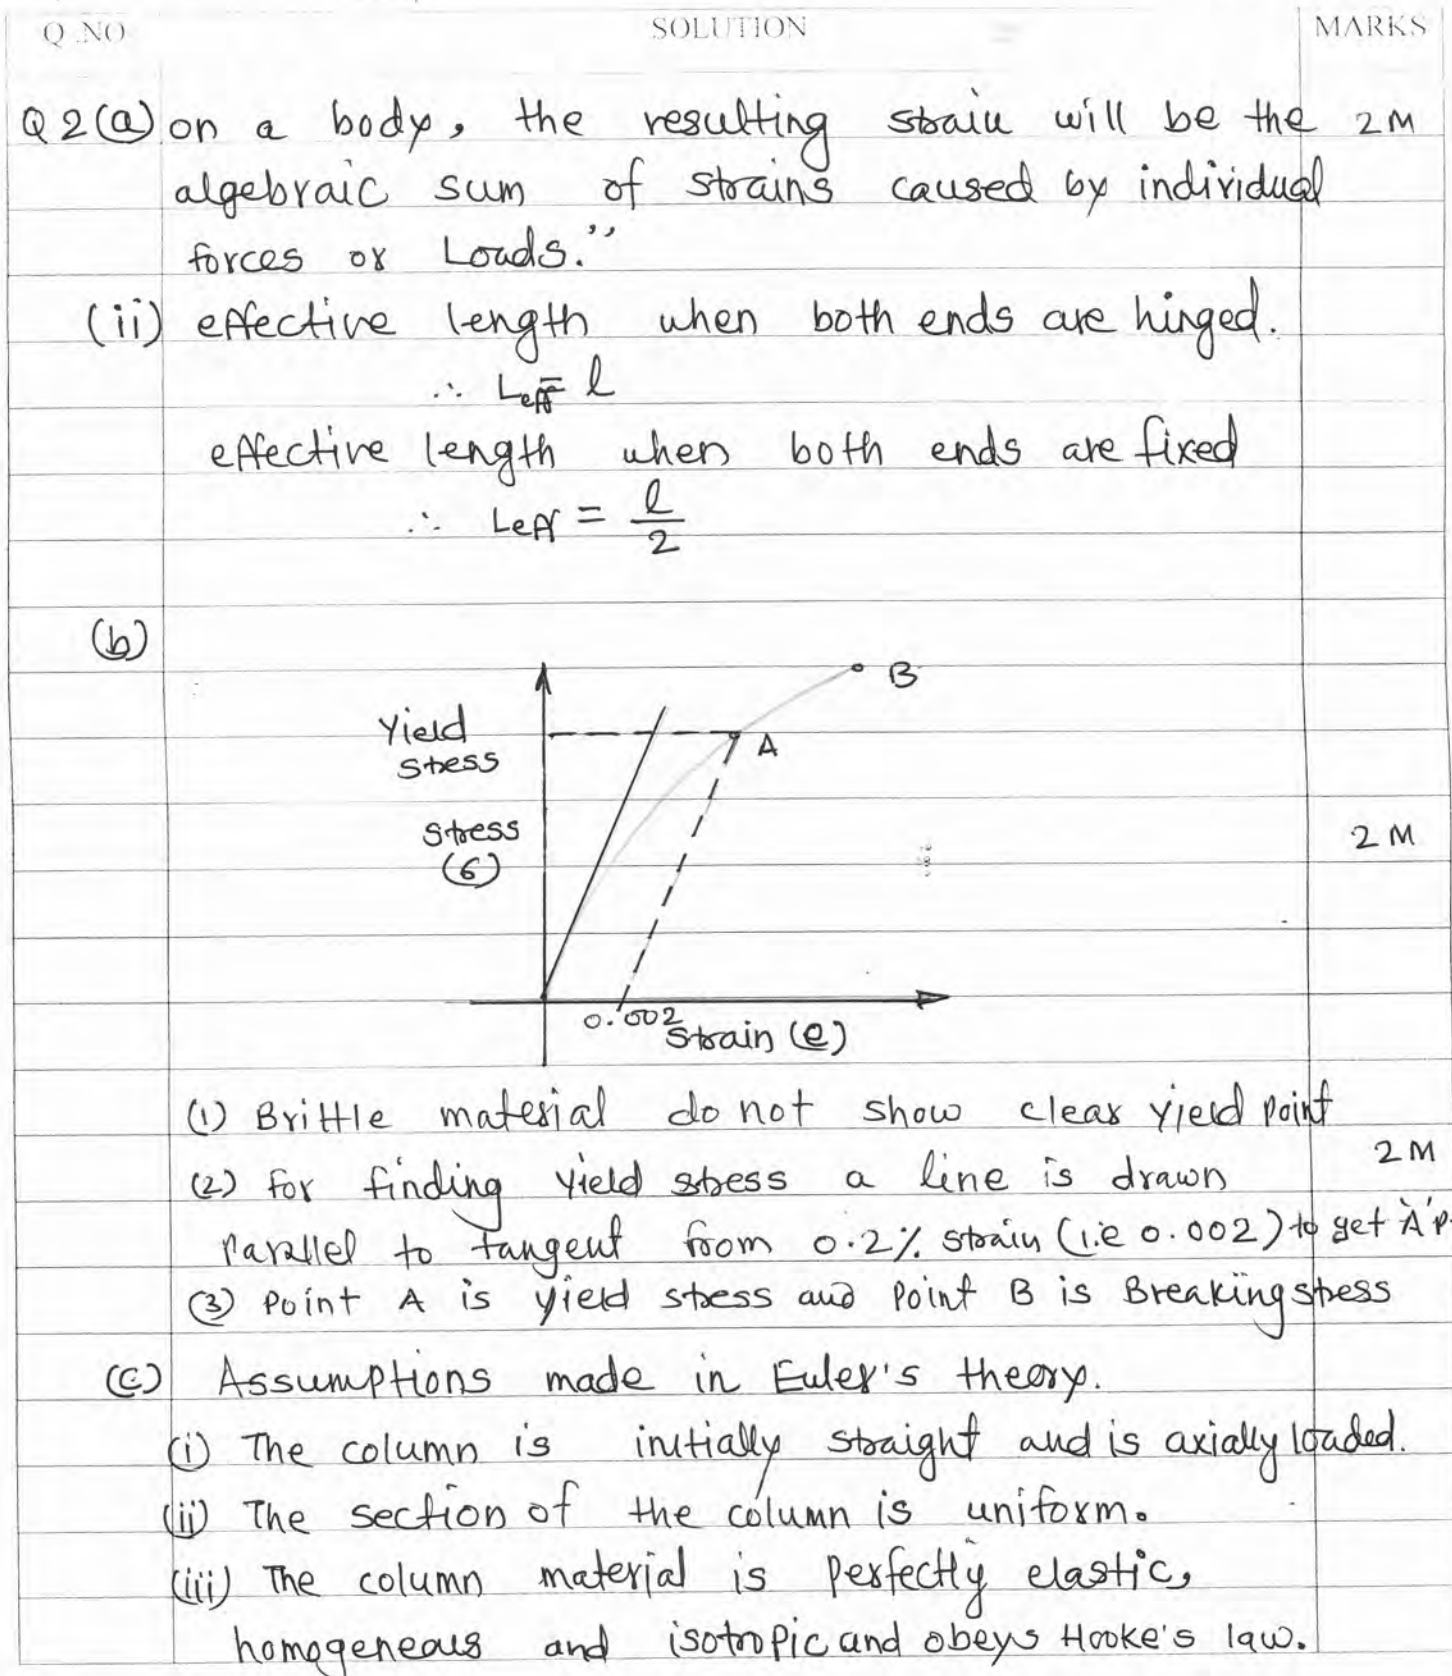 Q.NO SOLUTION MARKS
Q2(a) on a body, the resulting strain will be the 2M
algebraic sum of strains caused by individual
forces or Loads."
(ii) effective length when both ends are hinged.
∴ Leff = l
effective length when both ends are fixed
∴ Leff = l/2
(b)
B
Yield
stress
A
stress
(σ)
2 M
0.002
strain (e)
(1) Brittle material do not show clear yield point
2 M
(2) for finding yield stress a line is drawn
parallel to tangent from 0.2% strain (i.e 0.002) to get 'A' p.
(3) Point A is yield stress and point B is Breaking stress
(c) Assumptions made in Euler's theory.
(i) The column is initially straight and is axially loaded.
(ii) The section of the column is uniform.
(iii) The column material is perfectly elastic,
homogeneous and isotropic and obeys Hooke's law.